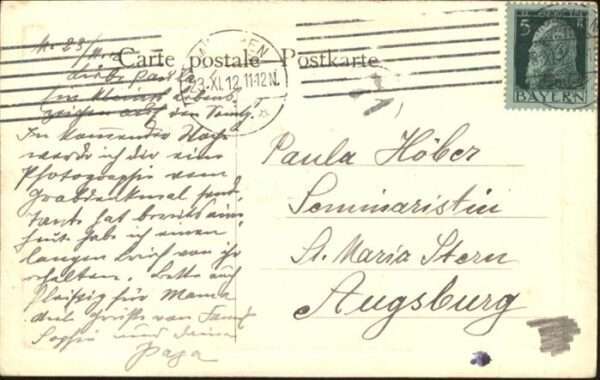 Carte postale – Postkarte
MÜNCHEN
23.XI.12 11-12N.
5
BAYERN
M. 23/
Liebe Paula
ein kleines Lebens
zeichen auf den Sonntg.
In kommender Woche
werde ich dir eine
Photographie vom
Grabdenkmal send.
Tante hat bereits eine
heut habe ich einen
langen Brief von ihr
erhalten. Bette auch
fleißig für Mama
und Grüße von Tante
Sophie und dein
Papa
Paula Höber
Seminaristin
St. Maria Stern
Augsburg